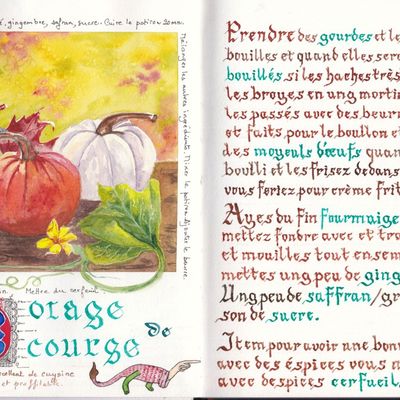 gingembre, safran, sucre. Cuire le potiron 20 mn.
Mélanger les autres ingrédients. Mixer le potiron. Ajouter le beurre.
Mettre du cerfeuil.
otage
de
courge
de cuysine
et prouffitable.
Prendre des gourdes et le
bouilles et quand elles sero
bouillés, si les hachés trè
les broyes en ung mortie
les passés avec des beur
et faits, pour le boullon et
des moyeuls d'œufs quan
boulli et les frisez dedans
vous feriez, pour crème frit
Ayes du fin fourmaige
mettez fondre avec et tro
et mouilles tout ensem
mettes ung peu de ging
Ung peu de saffran/gr
son de sucre.
Item, pour avoir une bon
avec des épices vous m
avec despices cerfeui